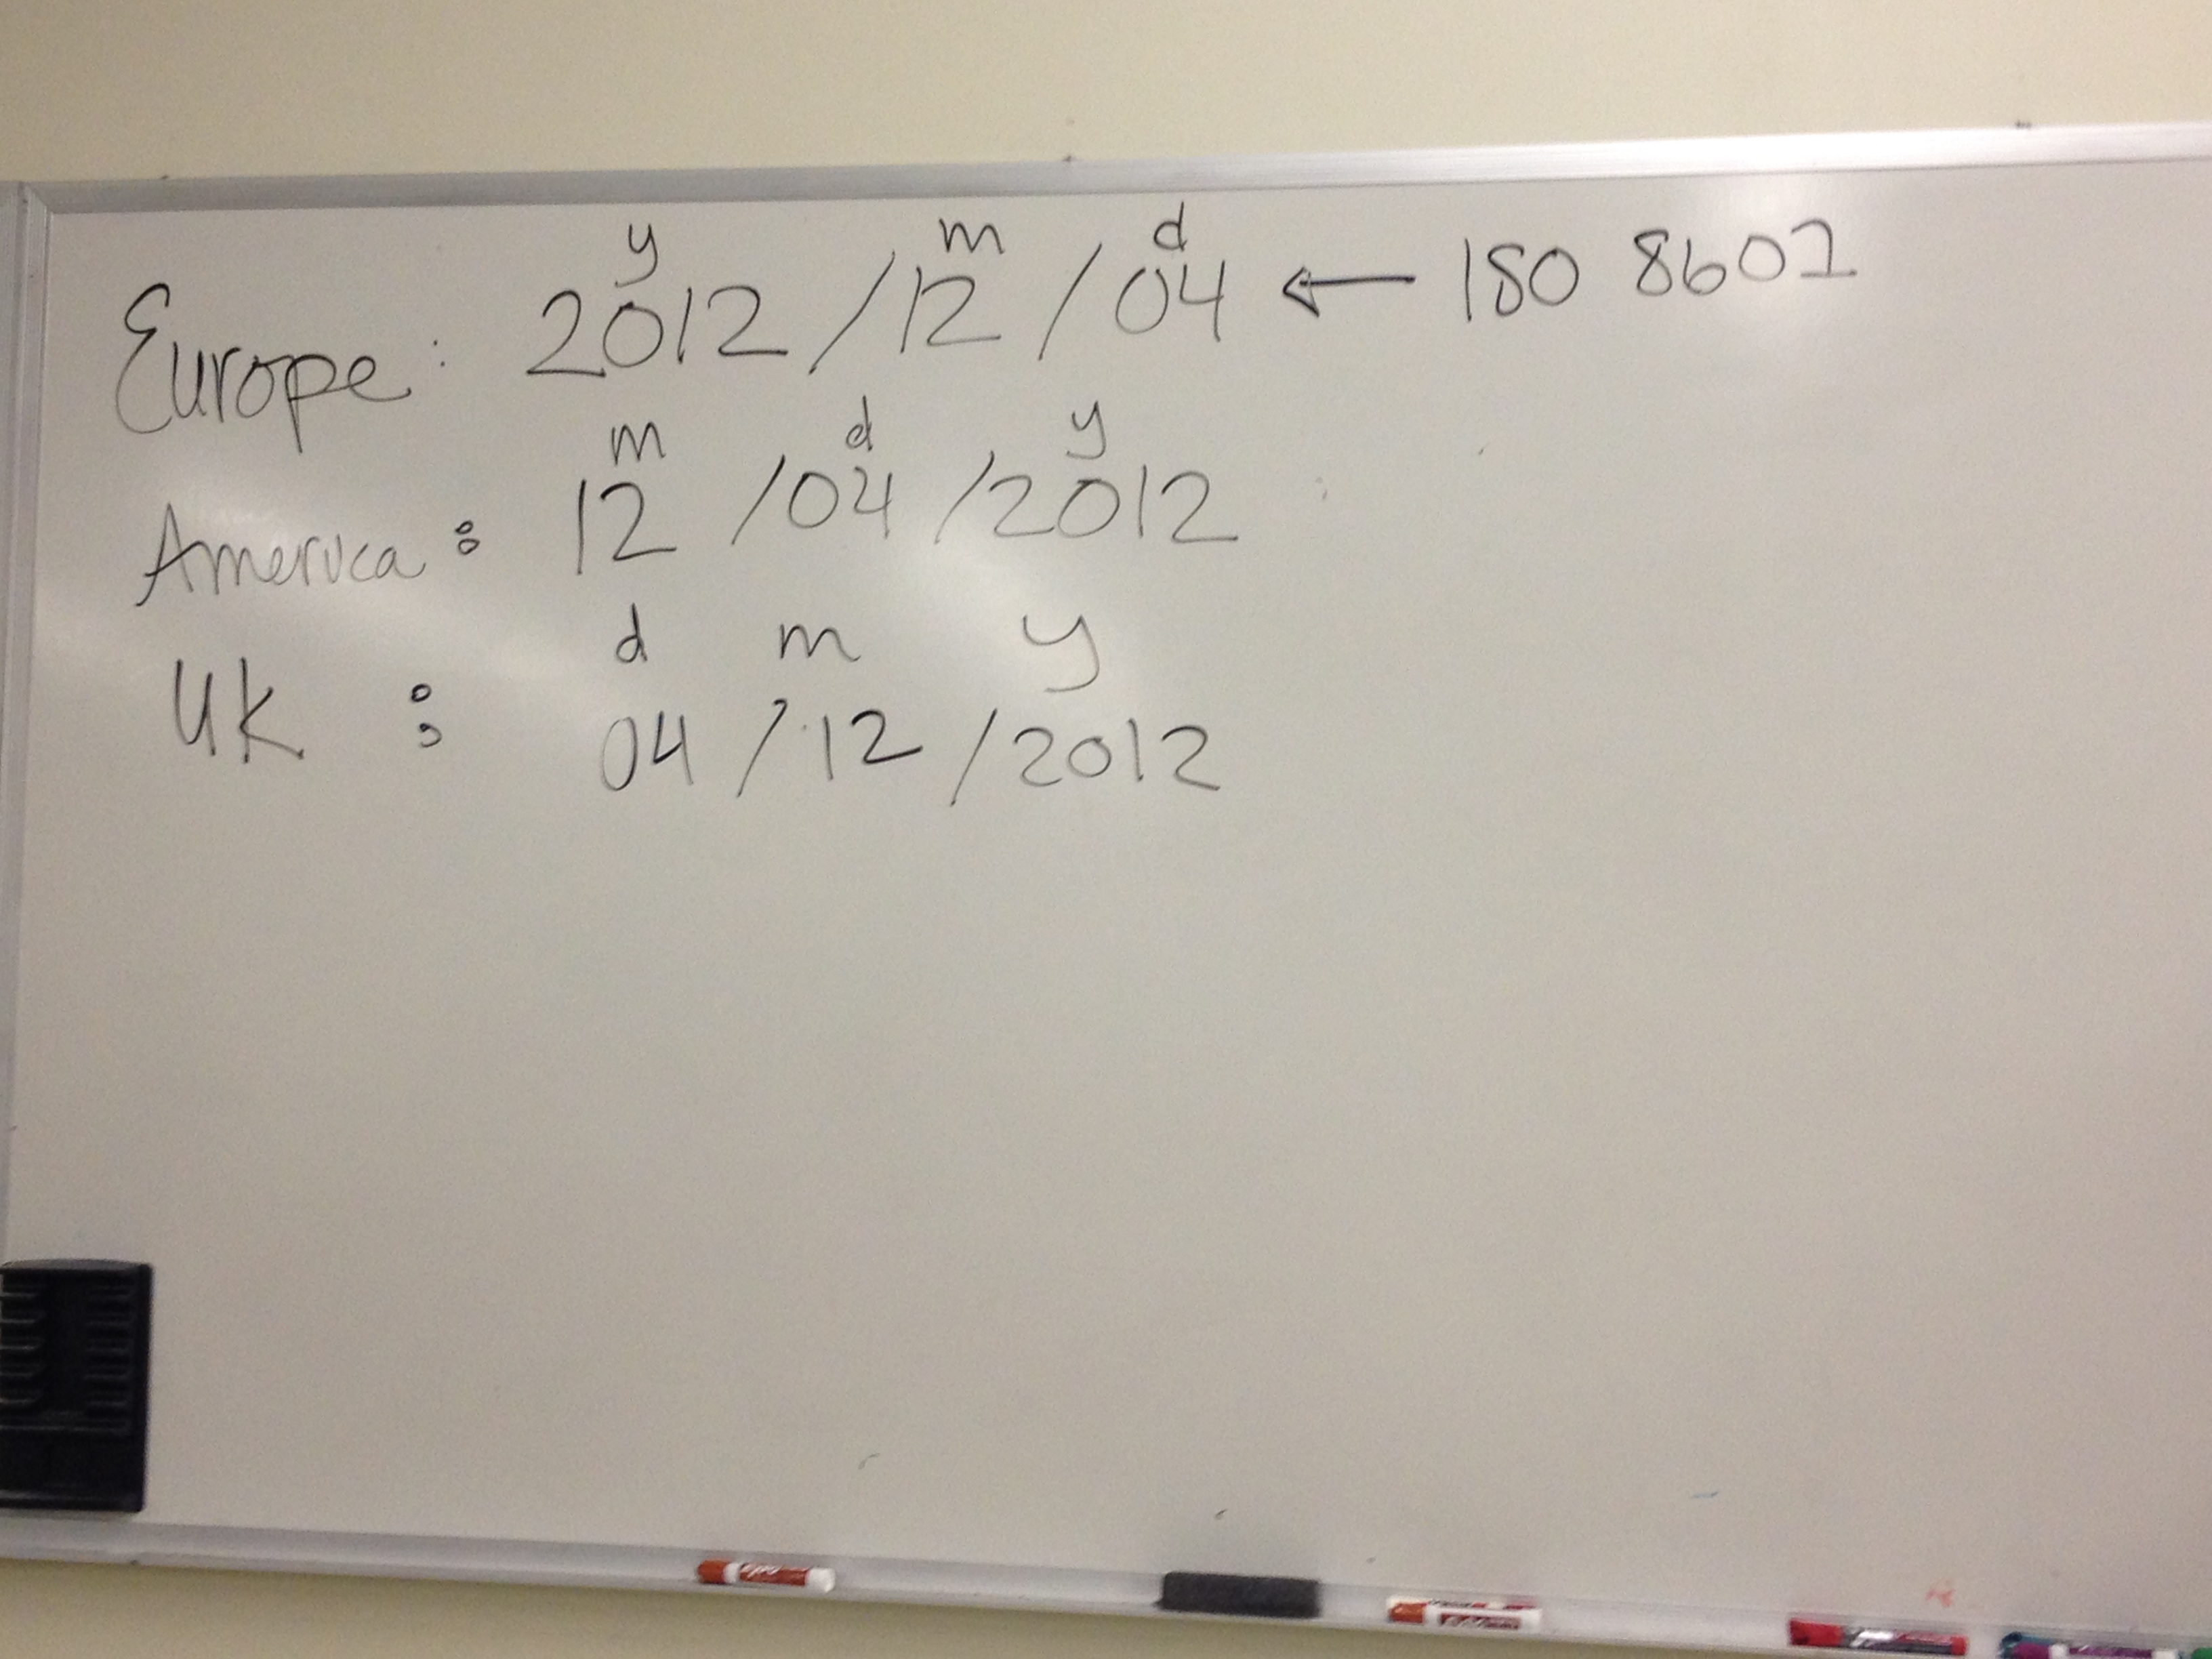 y m d
Europe: 2012 / 12 / 04 ← ISO 8601
m d y
America: 12 / 04 / 2012
d m y
UK : 04 / 12 / 2012